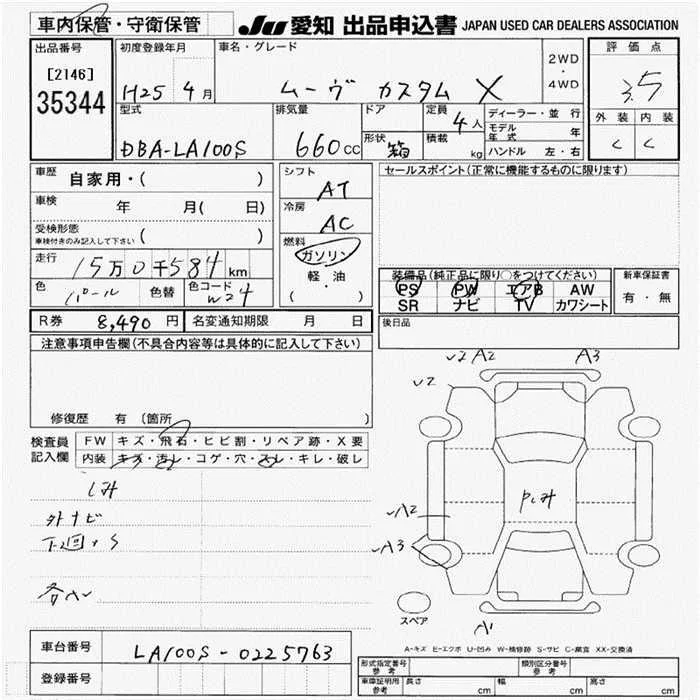 車内保管・守衛保管
JU 愛知 出品申込書 JAPAN USED CAR DEALERS ASSOCIATION
出品番号
[2146]
35344
初度登録年月
H25 4月
車名・グレード
ムーヴ カスタム X
2WD
・
4WD
評価点
3.5
外装 内装
C C
型式
DBA-LA100S
排気量
660cc
ドア
形状
箱
定員
4人
積載
kg
ディーラー・並行
モデル年式 年
ハンドル 左・右
車歴 自家用・( )
車検 年 月( 日)
受検形態
車検付きのみ記入して下さい ( )
走行 15万0千584km
色 パール 色替 色コード W24
シフト
AT
冷房
AC
燃料
ガソリン
軽・油
( )
セールスポイント(正常に機能するものに限ります)
装備品(純正品に限り○をつけてください)
PS PW エアB AW
SR ナビ TV カワシート
新車保証書
有・無
後日品
R券 8,490円 名変通知期限 月 日
注意事項申告欄(不具合内容等は具体的に記入して下さい)
修復歴 有(箇所 )
検査員記入欄
FW キズ・飛石・ヒビ割・リペア跡・X要
内装 キズ・汚レ・コゲ・穴・スレ・キレ・破レ
シミ
外ナビ
下回りS
各ヘ
√2 A2 A3
√2
A2
A3
Pシミ
スペア
A-キズ E-エクボ U-凹み W-補修跡 S-サビ C-腐食 XX-交換済
車台番号 LA100S-0225763
登録番号
形式指定番号 参考
類別区分番号 参考
車庫証明用 参考 長さ cm 幅 cm 高さ cm